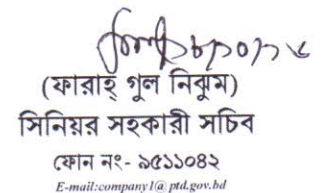 (ফারাহ্ গুল নিঝুম)
সিনিয়র সহকারী সচিব
ফোন নং- ৯৫১১০৪২
E-mail:company1@ptd.gov.bd